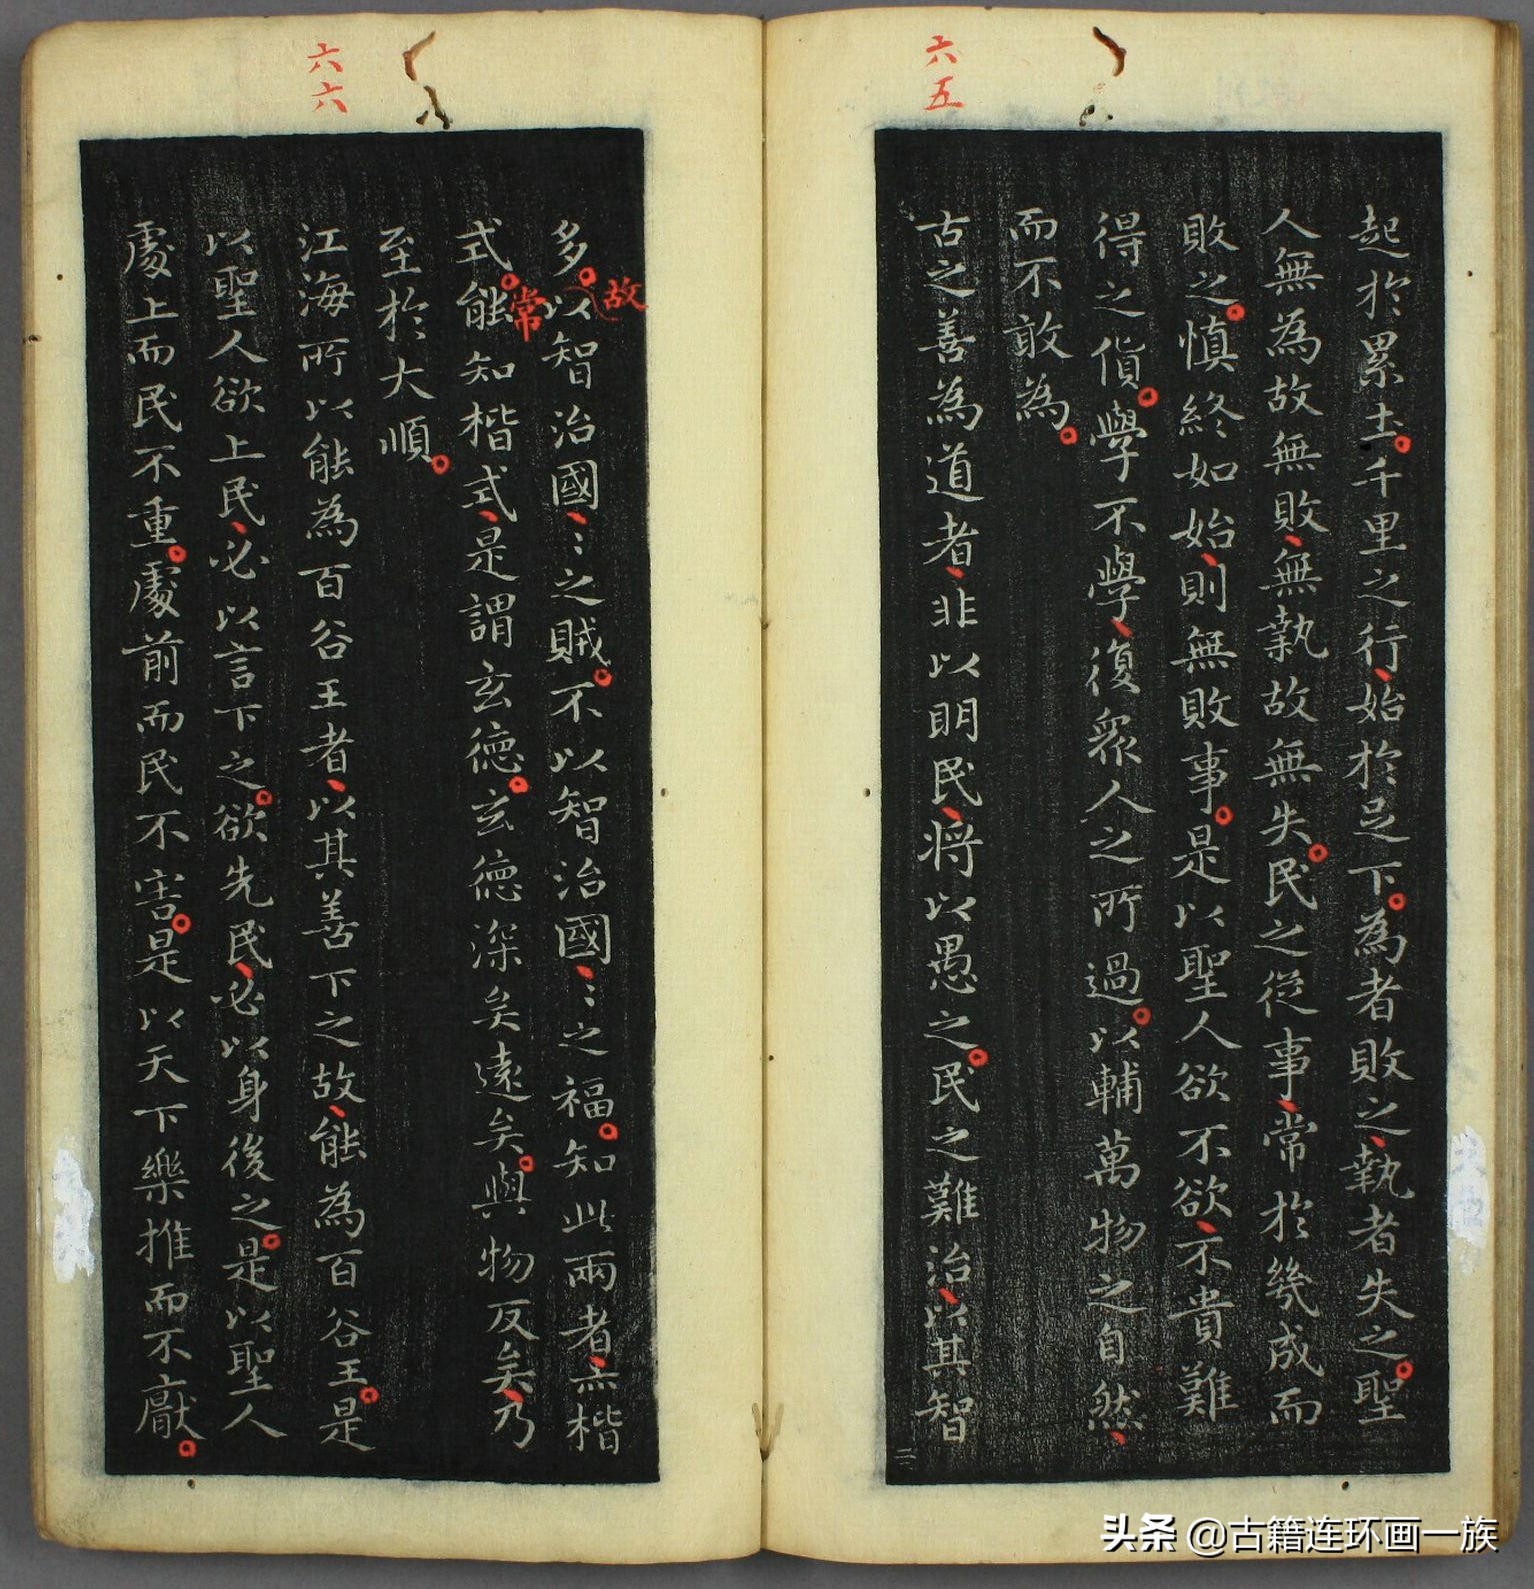 六五
起於累土。千里之行、始於足下。為者敗之、執者失之。聖
人無為故無敗、無執故無失。民之從事、常於幾成而
敗之。慎終如始、則無敗事。是以聖人欲不欲、不貴難
得之貨。學不學、復衆人之所過。以輔萬物之自然、
而不敢為。
古之善為道者、非以明民、將以愚之。民之難治、以其智
二
六六
多。以智治國、〻之賊。不以智治國、〻之福。知此兩者、亦楷
故
式。能知楷式、是謂玄德。玄德深矣遠矣。與物反矣、乃
常
至於大順。
江海所以能為百谷王者、以其善下之故、能為百谷王。是
以聖人欲上民、必以言下之。欲先民、必以身後之。是以聖人
處上而民不重。處前而民不害。是以天下樂推而不厭。
头条 @古籍连环画一族